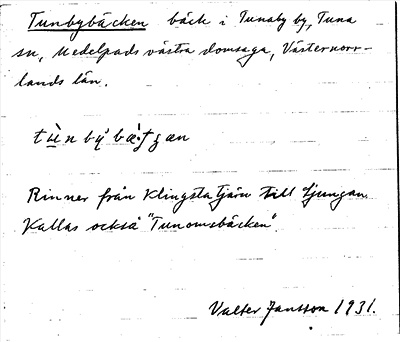 Tunbybäcken bäck i Tunaby by, Tuna
sn, Medelpads västra domsaga, Västernorr-
lands län.
Rinner från Klingsta tjärn till Ljungan.
Kallas också "Tunomsbäcken".
Valter Jansson 1931.